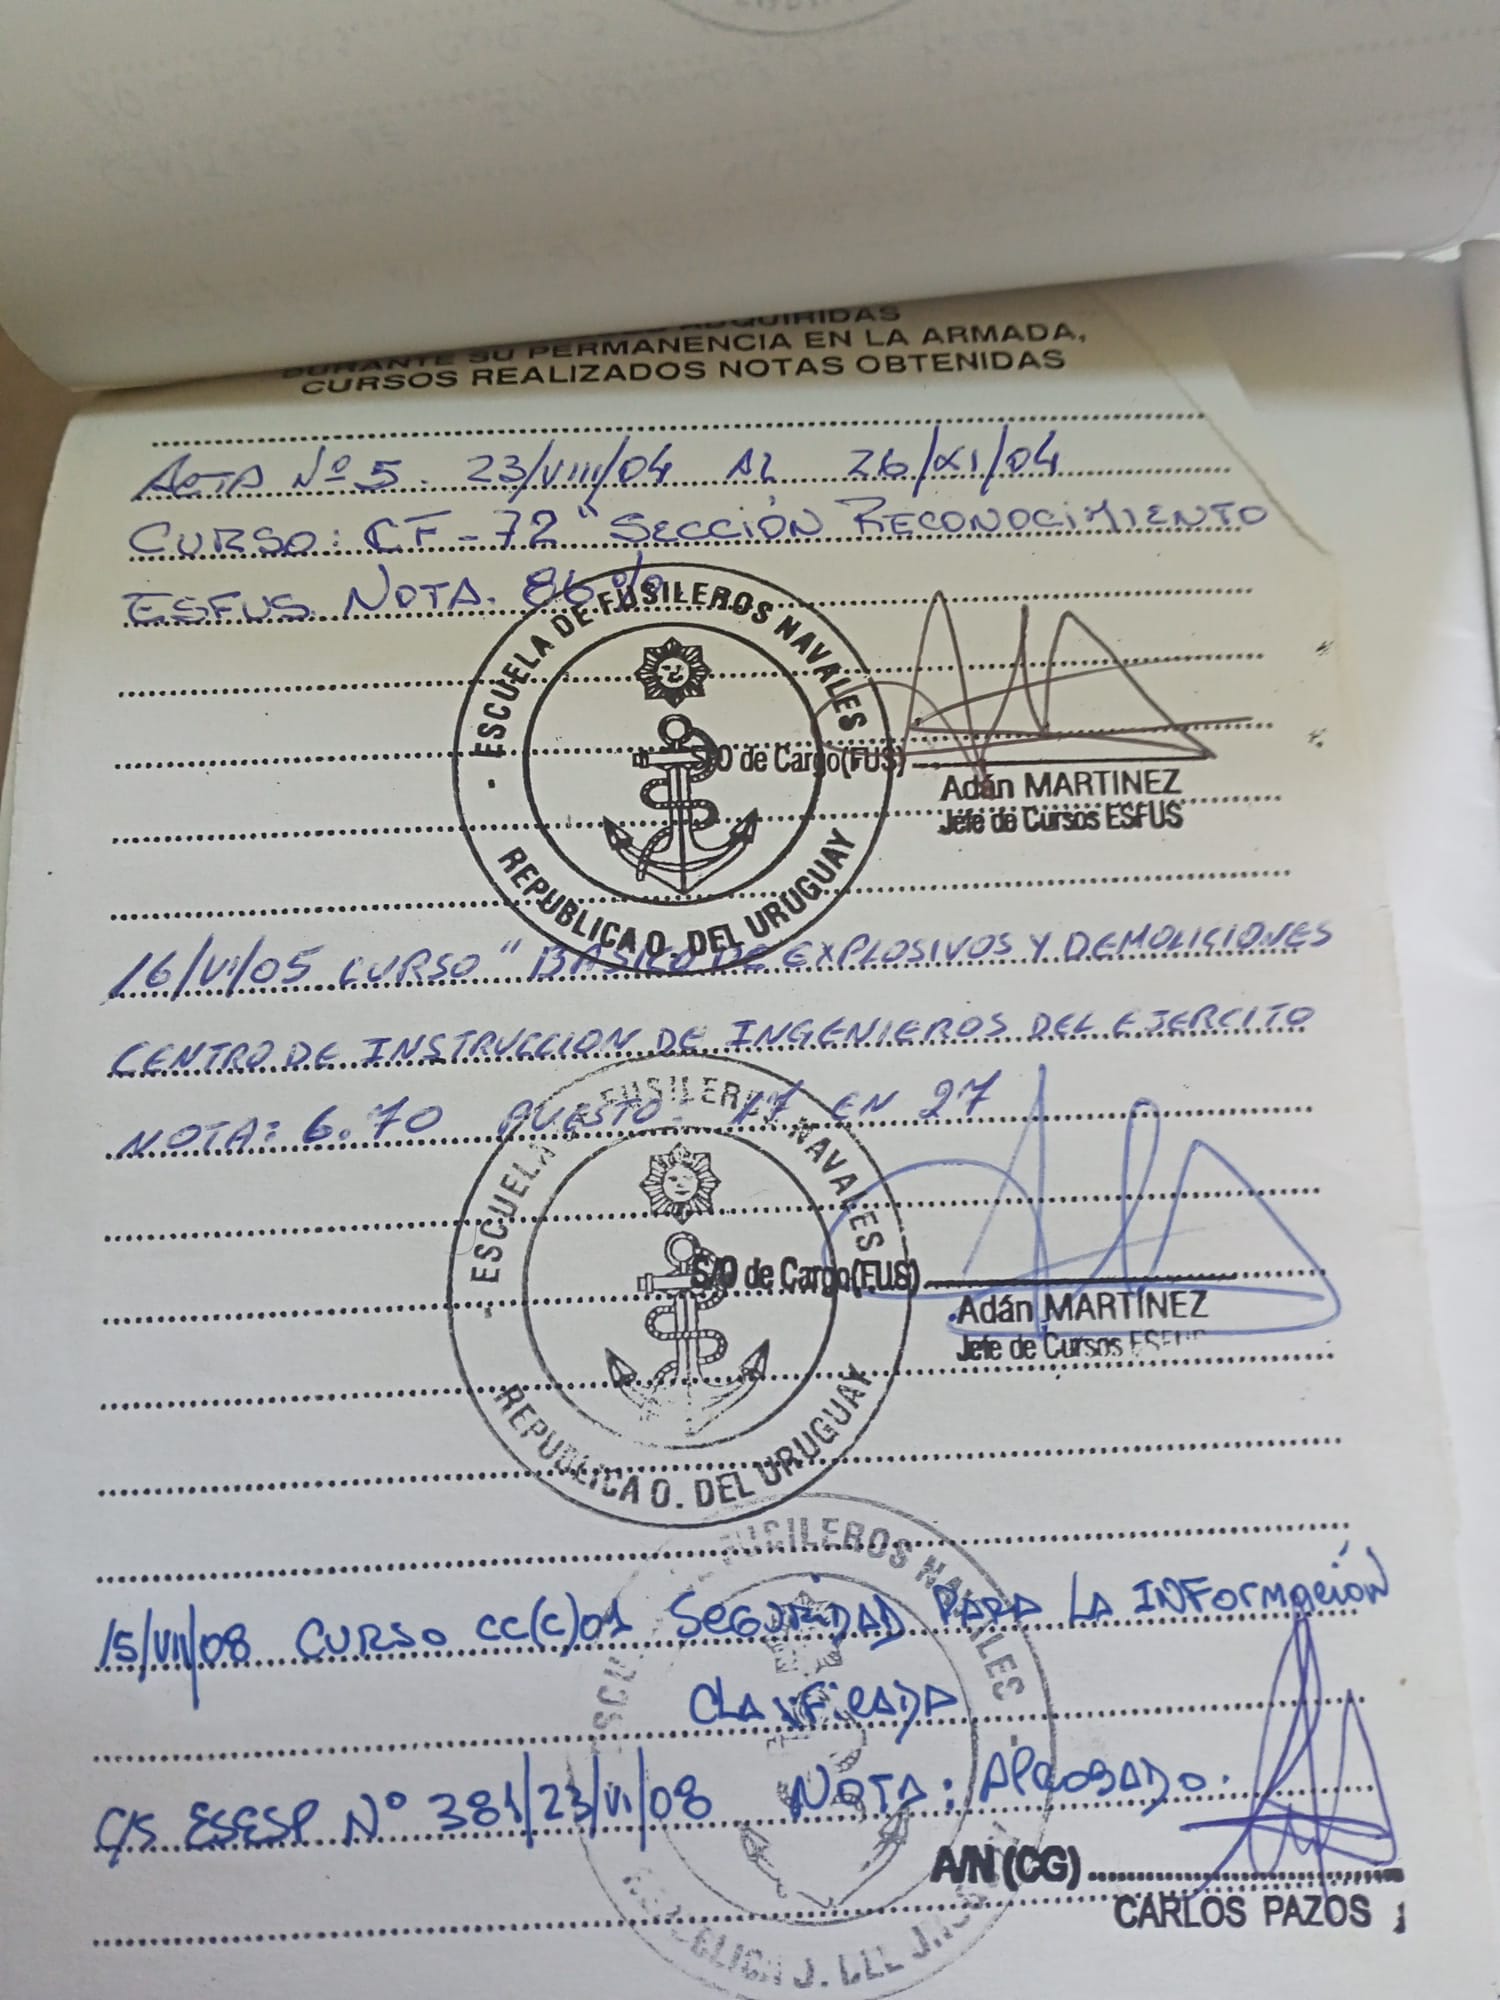 ADQUIRIDAS
DURANTE SU PERMANENCIA EN LA ARMADA,
CURSOS REALIZADOS NOTAS OBTENIDAS
ACTA Nº 5. 23/VIII/04 AL 26/XI/04
CURSO: CF-72 "SECCIÓN RECONOCIMIENTO
ESFUS. NOTA. 86%
- ESCUELA DE FUSILEROS NAVALES
REPUBLICA O. DEL URUGUAY
S/O de Cargo(FUS)
Adán MARTINEZ
Jefe de Cursos ESFUS
16/VI/05 CURSO "BÁSICO DE EXPLOSIVOS Y DEMOLICIONES
CENTRO DE INSTRUCCION DE INGENIEROS DEL EJERCITO
NOTA: 6.70 PUESTO: 17 EN 27
- ESCUELA FUSILEROS NAVALES
REPUBLICA O. DEL URUGUAY
S/O de Cargo(FUS)
Adán MARTINEZ
Jefe de Cursos ESFUS
FUSILEROS NAVALES -
15/VII/08 CURSO CC(C)01 SEGURIDAD PARA LA INFORMACIÓN
CLASIFICADA
C/S ESESP Nº 381/23/VI/08 NOTA: APROBADO.
A/N (CG)
CARLOS PAZOS